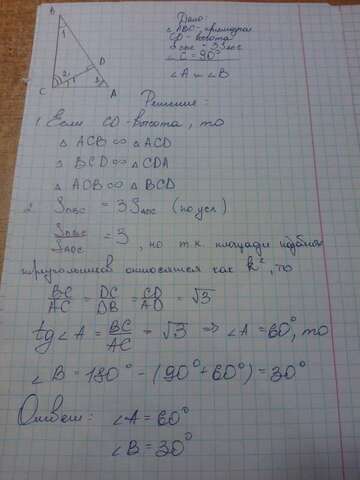 B
1
D
2
1
3
C
A
Дано:
△ ABC - прямоугол
CD - высота
S DBC = 3 S ADC
∠C = 90°
∠A и ∠B
Решение:
1. Если CD - высота, то
△ ACB ∞ △ ACD
△ BCD ∞ △ CDA
△ ACB ∞ △ BCD
2. S DBC = 3 S ADC (по усл)
S DBC / S ADC = 3, но т.к. площади подобных
треугольников относятся как k², то
BC/AC = DC/DB = CD/AD = √3
tg∠A = BC/AC = √3 ⇒ ∠A = 60°, то
∠B = 180° - (90° + 60°) = 30°
Ответ: ∠A = 60°
∠B = 30°